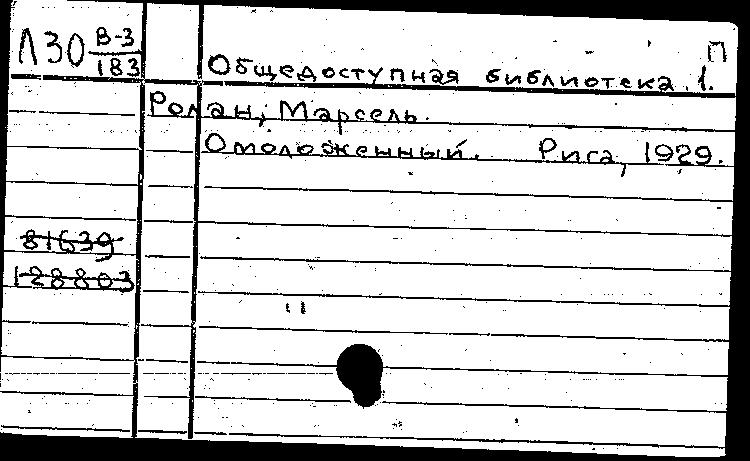 П
Л30 В-3/183 Общедоступная библиотека. 1.
Ролан, Марсель.
Омоложенный. Рига, 1929.
81639
128803